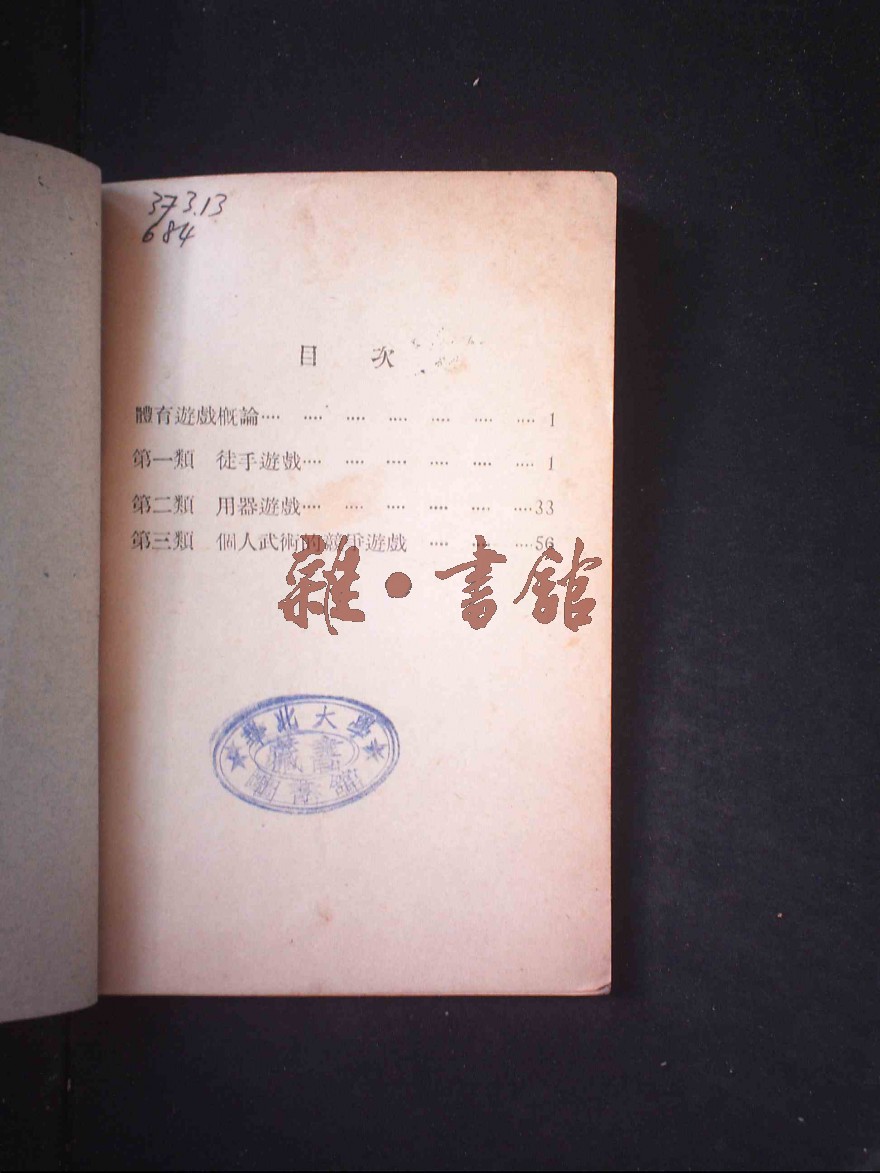 373.13
684
目 次
體育遊戲概論···· ···· ···· ···· ···· ···· ···· 1
第一類 徒手遊戲···· ···· ···· ···· ···· ···· 1
第二類 用器遊戲···· ···· ···· ···· ···· ····33
第三類 個人武術的競爭遊戲 ···· ···· ····56
雜·書館
華北大學
藏書
圖書館